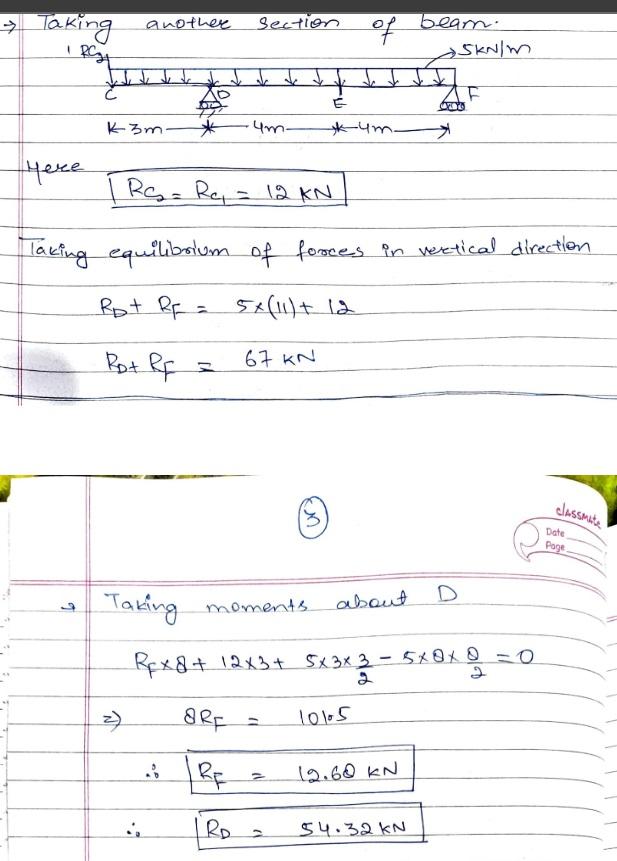 → Taking another section of beam.
RC₂
5KN/m
C D E F
3m 4m 4m
Here
RC₂ = RC₁ = 12 KN
Taking equilibrium of forces in vertical direction
RD + RF = 5×(11)+ 12
RD+ RF = 67 KN
3
classmate
Date
Page
→ Taking moments about D
RF×8 + 12×3 + 5×3×3/2 - 5×8×8/2 = 0
⇒ 8RF = 101.5
∴ RF = 12.68 KN
∴ RD = 54.32 KN